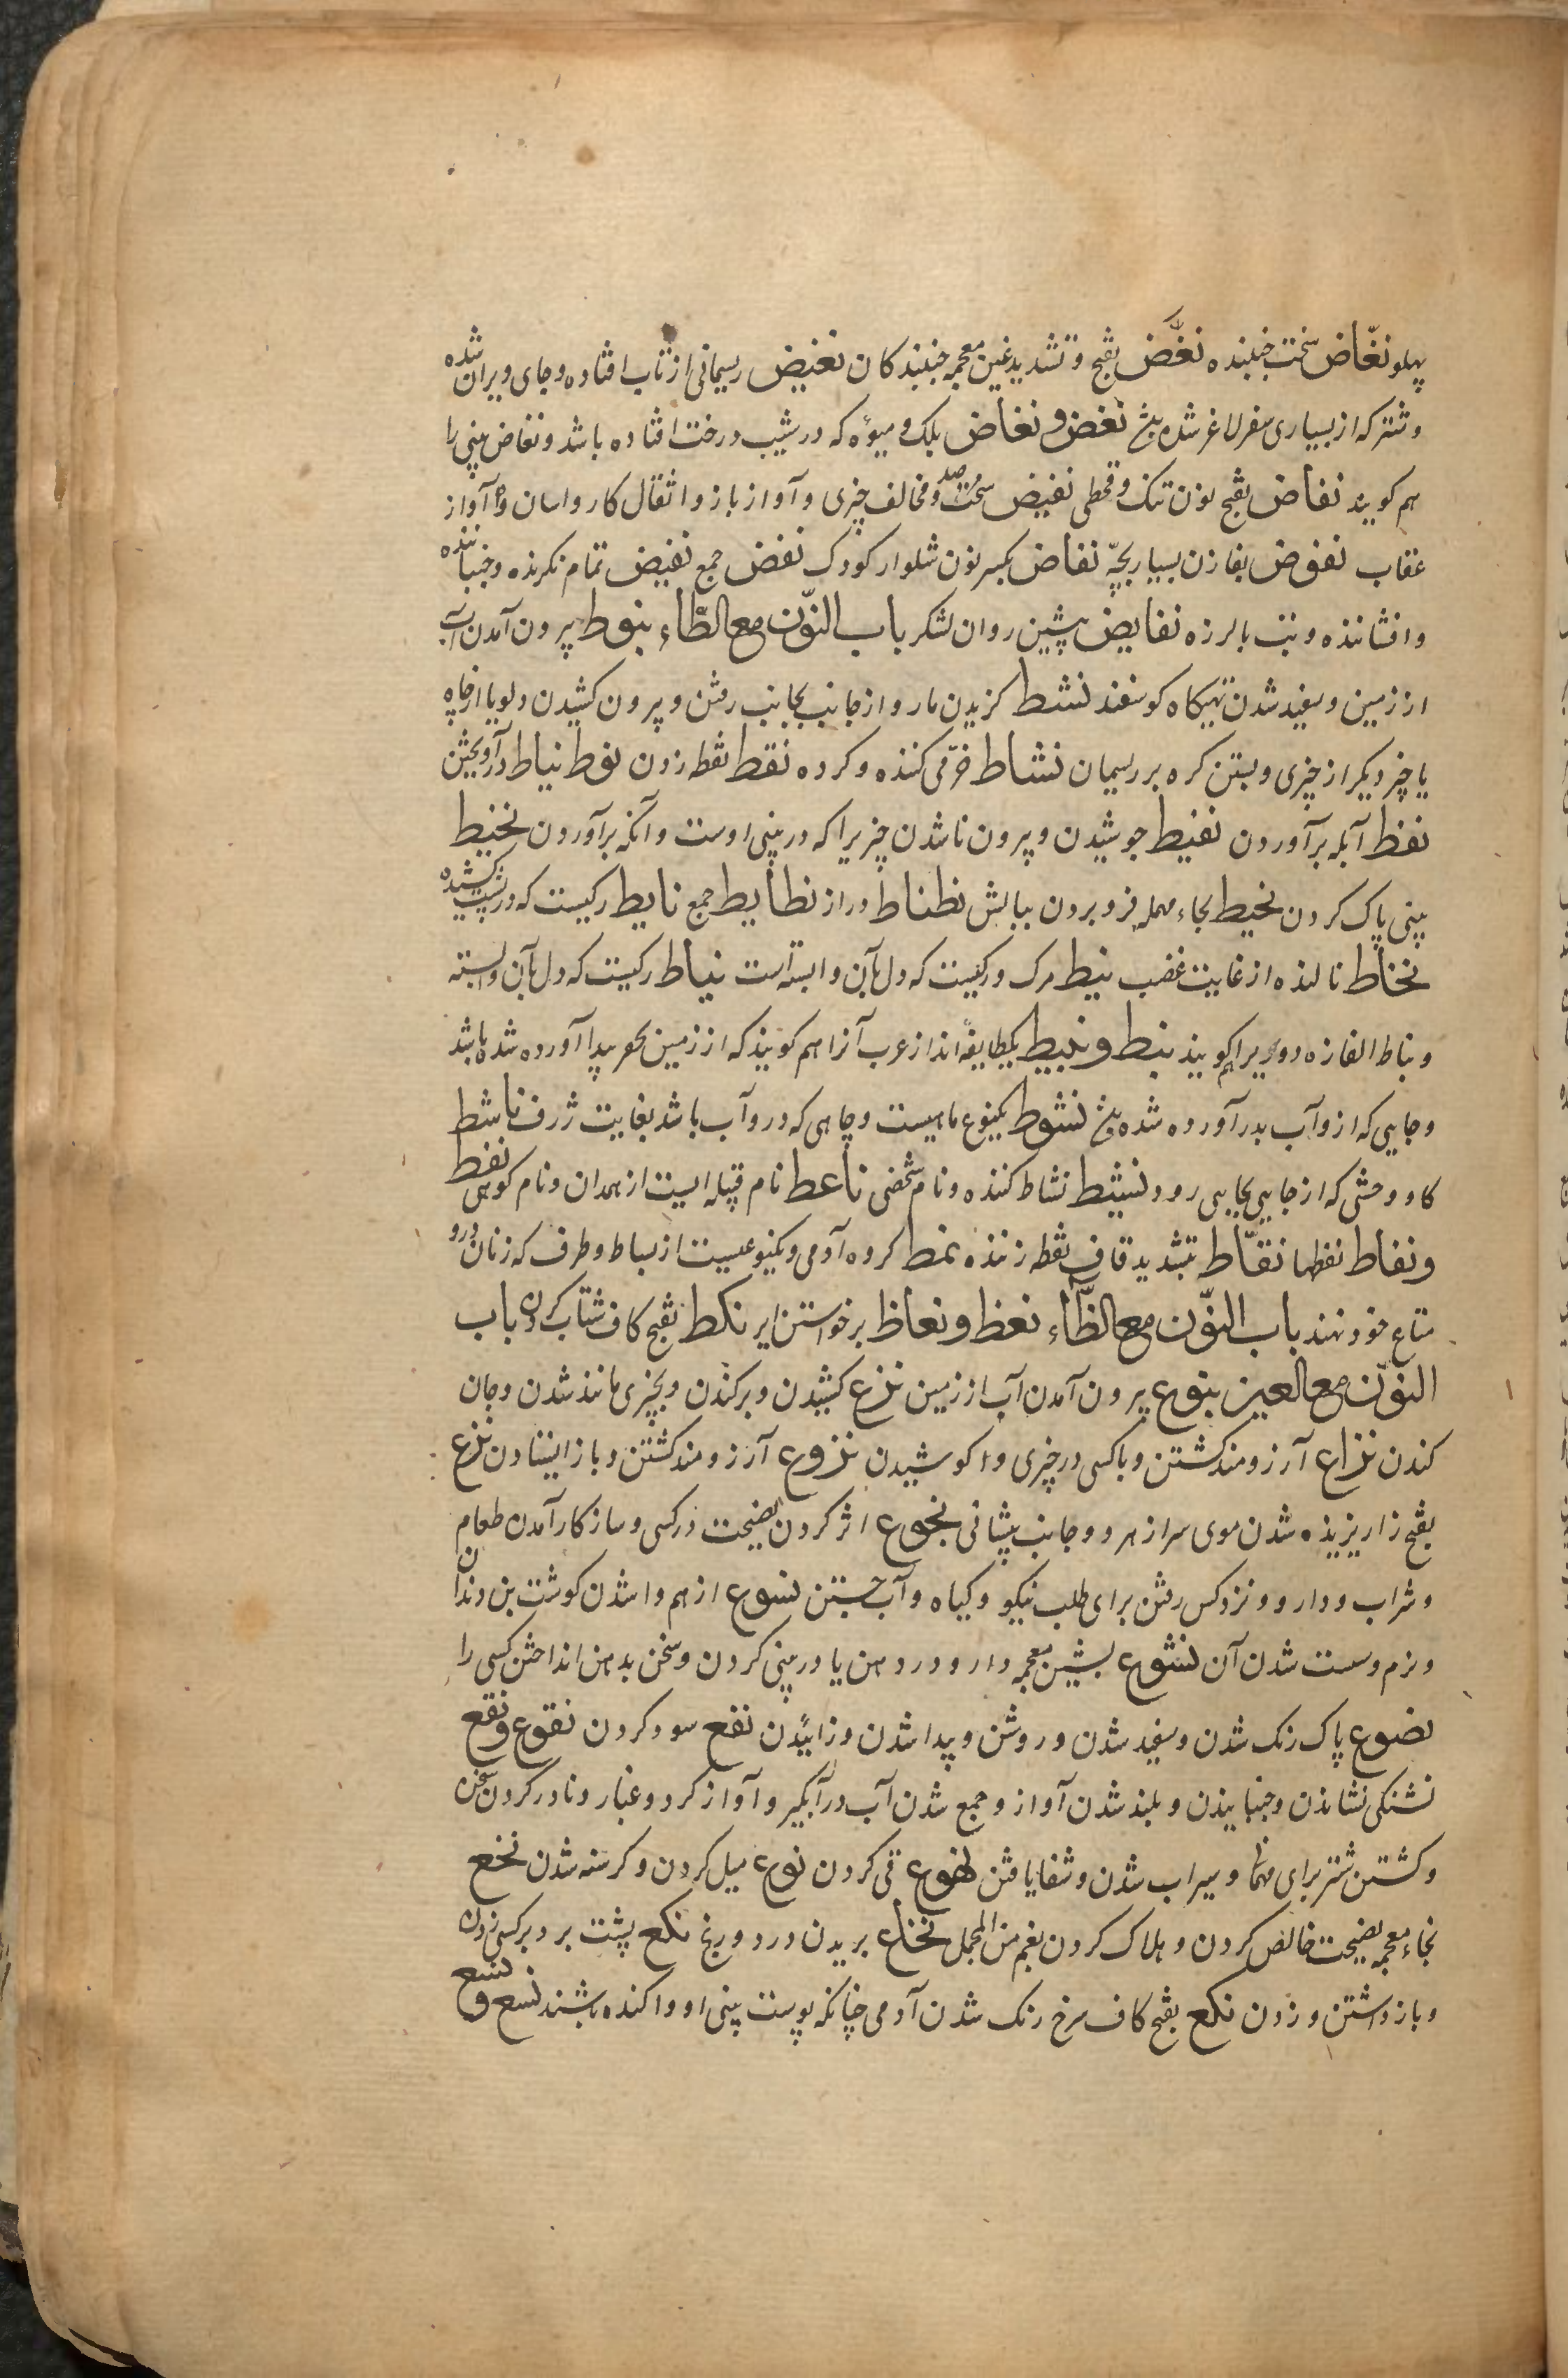 پهلو نغّاض سخت جنبنده نغّض بفتح و تشدید غین معجمه جنبندکان نغیض ریسمانی از تاب افتاده و جای ویران شده
و شتر که از بسیاری سفر لاغر شده نغض و نغاض بلک و میوهٔ که در شیب درخت افتاده باشد و نغاض بینی را
هم کویند نفاض بفتح نون تنک و قحطی نقیض سخت و مخالف چیزی و آواز باز و اثقال کاروانسان و آواز
عقاب نفوض بفا زن بسیار بچّه نفاض بکسر نون شلوار کودک نفض جمع نفیض تمام نکرنده و جنباننده
و افشاننده و تب با لرزه نفایض پیشین روان لشکر باب النّون مع الطّاء نبوط بیرون آمدن آب
از زمین و سفید شدن تهیکاه کوسفند نشط کزیدن مار و از جانب بجانب رفتن و بیرون کشیدن دلو یا از چاه
یا چیز دیکر از چیزی و بستن کره بر ریسمان نشاط خرّمی کننده و کرده نقط نقطه زدن نوط نیاط درآویختن
نفط آبله برآوردن نفیط جوشیدن و بیرون ناشدن چیزیرا که در بینی اوست و آبله برآوردن نخیط
بینی پاک کردن نحیط بحاء مهمله فرو بردن ببالش نطناط دراز نطایط جمع نایط رکیست که در پشت کشیده
نخاط نالنده از غایت غضب نیط مرک و رکیست که دل بآن وابسته است نیاط رکیست که دل بآن وابسته
و نیاط المفازه دوریرا هم کویند نبط و نبیط یکطایفه‌اند از عرب آنرا هم کویند که از زمین بحفر پیدا آورده شده باشد
و جایی که ازو آب بدر آورده شده نشوط یکنوع ماهیست و چاهی که درو آب باشد بغایت ژرف ناشط
کاو وحشی که از جایی بجایی رود نشیط نشاط کننده و نام شخصی ناعط نام قبیله‌ایست از همدان و نام کوهی نقط
و نقاط نقطها نقّاط بتشدید قاف نقطه زننده نمط کروه آدمی و یکنوعیست از بساط و ظرف که زنان درو
متاع خود نهند باب النّون مع الظّاء نعظ و نعاظ برخواستن ایر نکظ بفتح کاف شتاب کردن باب
النّون مع العین نبوع بیرون آمدن آب از زمین نزع کشیدن و برکندن و بچیزی مانند شدن و جان
کندن نزاع آرزومند کشتن و با کسی در چیزی وا کوشیدن نزوع آرزومند کشتن و باز ایستادن نزع
بفتح زا ریزیده شدن موی سر از هر دو جانب پیشانی نجوع اثر کردن نصیحت در کسی و ساز کار آمدن طعام
و شراب و دارو و نزد کس رفتن برای طلب نیکو و کیاه و آب جستن نسوع از هم وا شدن کوشت بن دندان
و نرم و سست شدن آن نشوع بشین معجمه دارو در دهن یا در بینی کردن و سخن بدهن انداختن کسی را
نصوع پاک رنک شدن و سفید شدن و روشن و پیدا شدن و زائیدن نفع سود کردن نقوع و نقع
تشنکی نشاندن و جنبانیدن و بلند شدن آواز و جمع شدن آب در آبکیر و آواز کرد و غبار و نادر کردن سخن
و کشتن شتر برای مهمان و سیراب شدن و شفا یافتن نهوع قی کردن نوع میل کردن و کرسنه شدن نخع
بخاء معجمه نصیحت خالص کردن و هلاک کردن بغم من المجمل نخاع بریدن درد و رنج نکع پشت بر دبر کسی زدن
و باز داشتن و زدن نکع بفتح کاف سرخ رنک شدن آدمی چنانکه پوست بینی او وا کنده باشند نسع و نسع